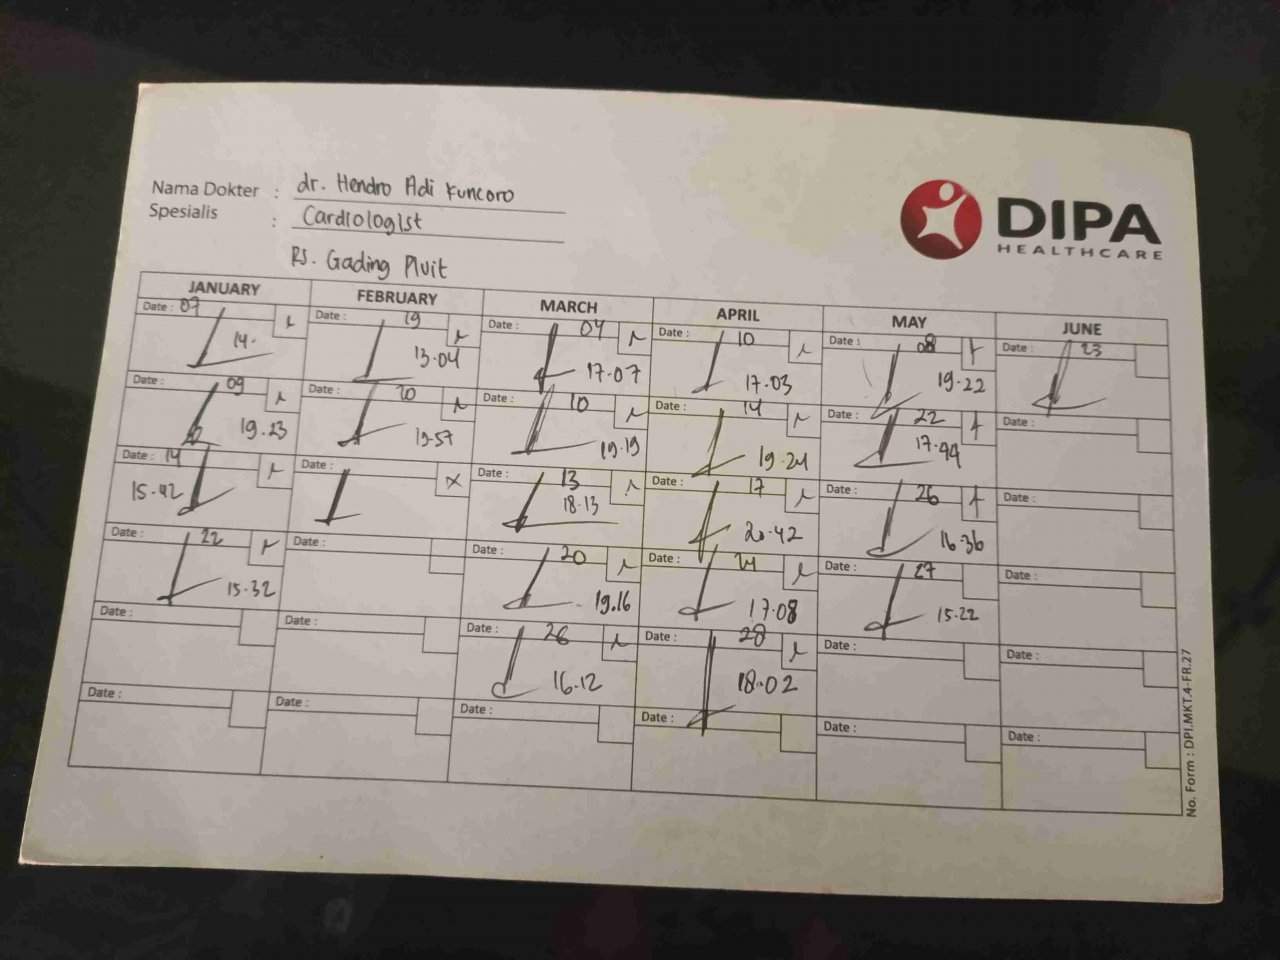 Nama Dokter : dr. Hendro Adi Kuncoro
Spesialis : Cardiologist
Rs. Gading Pluit
DIPA
HEALTHCARE
JANUARY FEBRUARY MARCH APRIL MAY JUNE
Date : 07 Date : 19 Date : 04 Date : 10 Date : 08 Date : 23
14. 13.04 17.07 17.03 19.22
Date : 09 Date : 20 Date : 10 Date : 14 Date : 22 Date :
19.23 19.57 19.19 19.24 17.44
Date : 14 Date : x Date : 13 Date : 17 Date : 26 Date :
15.42 18.13 20.42 16.36
Date : 22 Date : Date : 20 Date : 24 Date : 27 Date :
15.32 19.16 17.08 15.22
Date : Date : Date : 26 Date : 28 Date : Date :
16.12 18.02
Date : Date : Date : Date : Date : Date :
No. Form : DPI.MKT.4-FR.27